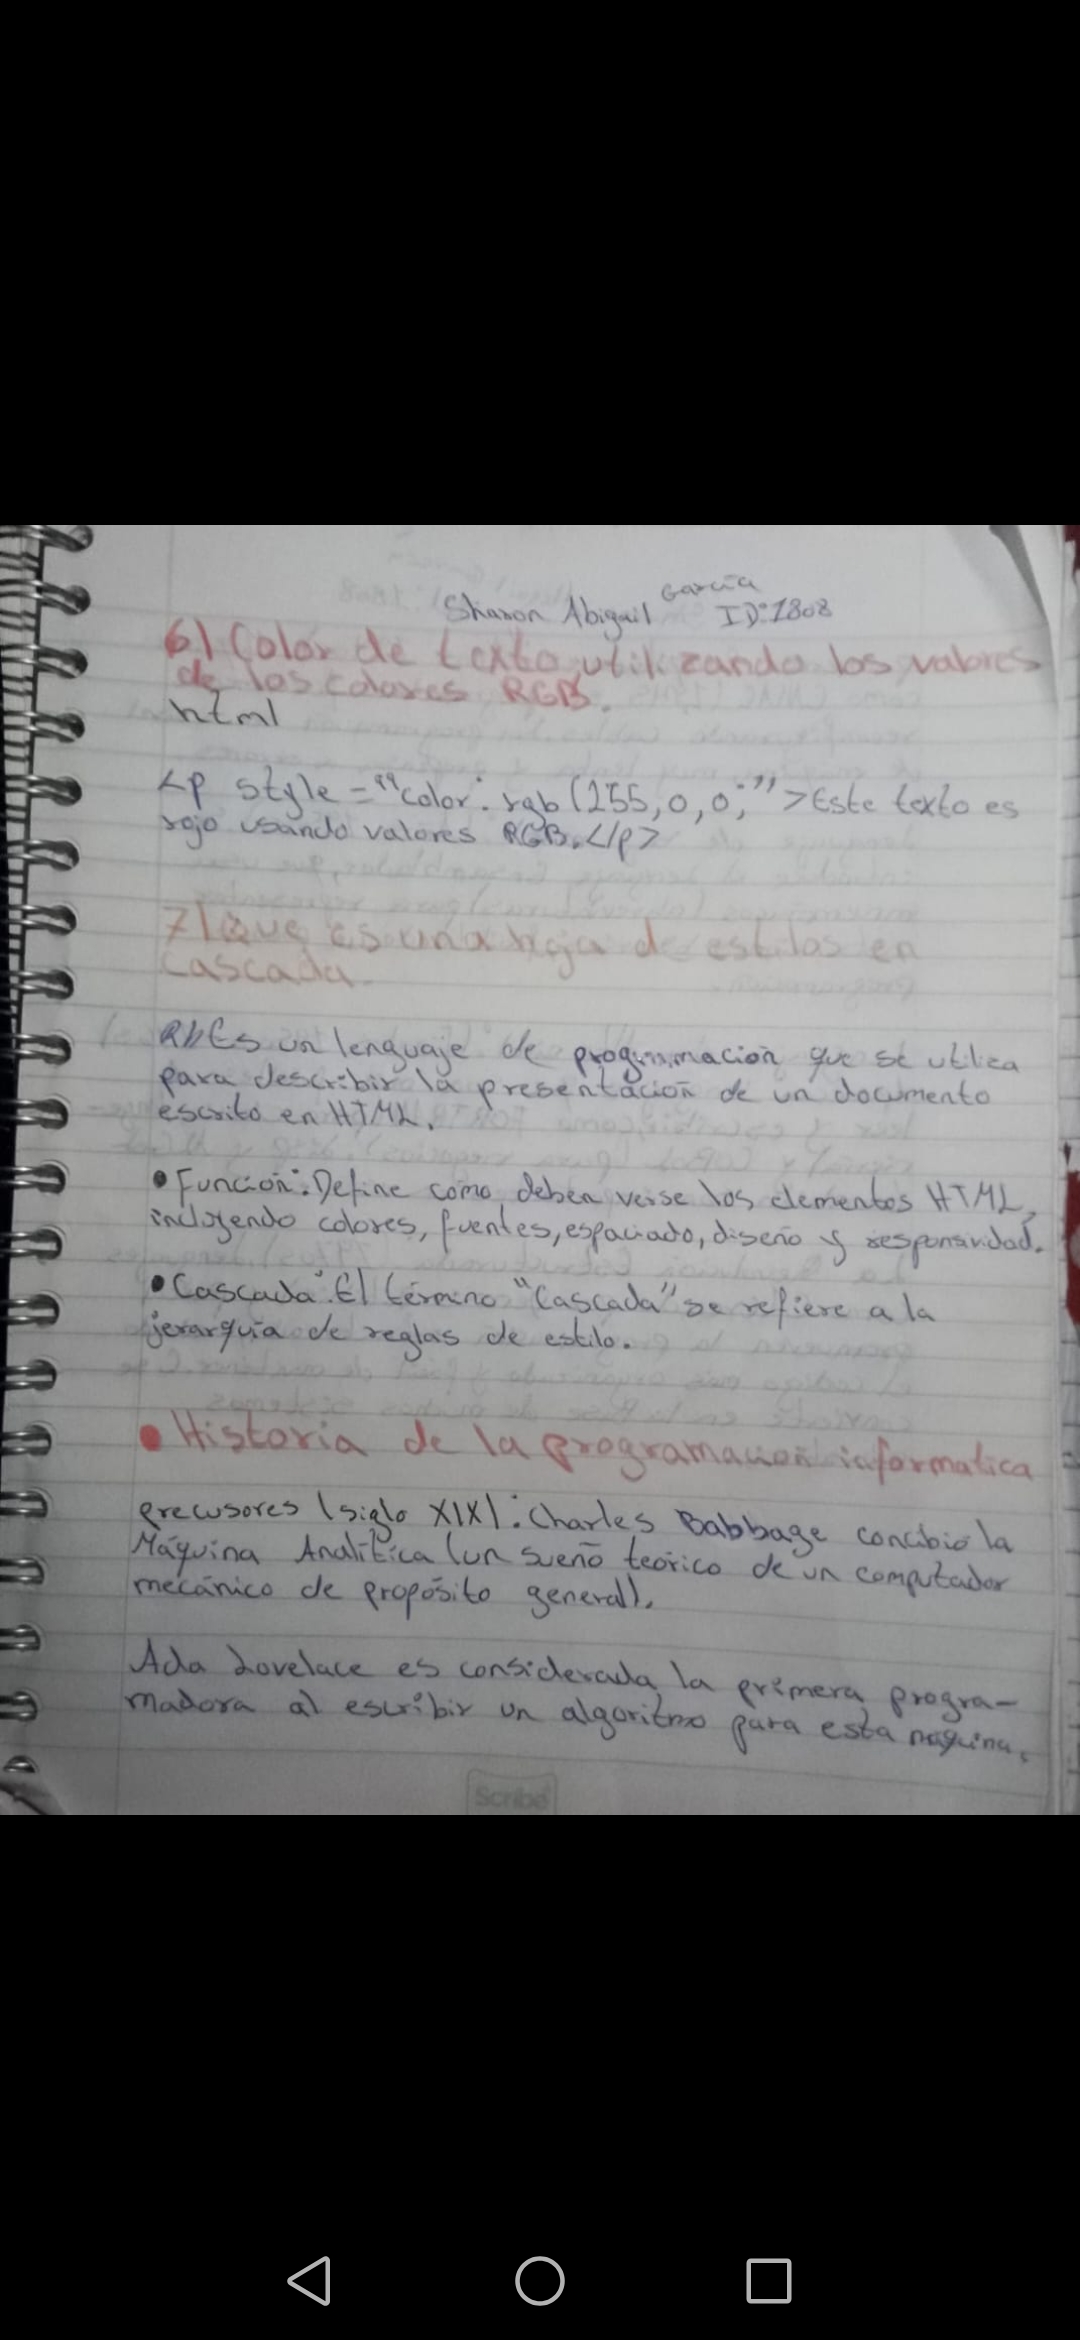 Sharon Abigail García ID:1808
6) Color de texto utilizando los valores
de los colores RGB.
html
<p style="color: rgb(255,0,0;">Este texto es
rojo usando valores RGB.</p>
7) Que es una hoja de estilos en
cascada.
R// Es un lenguaje de programación que se utiliza
para describir la presentación de un documento
escrito en HTML.
• Función: Define como deben verse los elementos HTML,
incluyendo colores, fuentes, espaciado, diseño y responsividad.
• Cascada: El término "Cascada" se refiere a la
jerarquía de reglas de estilo.
• Historia de la programación informatica
precusores (siglo XIX): Charles Babbage concibió la
Máquina Analítica (un sueño teórico de un computador
mecánico de propósito general).
Ada Lovelace es considerada la primera progra-
madora al escribir un algoritmo para esta máquina.
Scribe